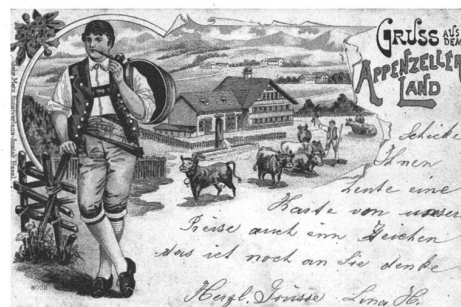 GRUSS AUS DEM
APPENZELLER
LAND
Schicke
Ihnen
heute eine
Karte von unserer
Reise auch ein Zeichen
das ich noch an Sie denke
Herzl. Grüsse Lina H.
6002